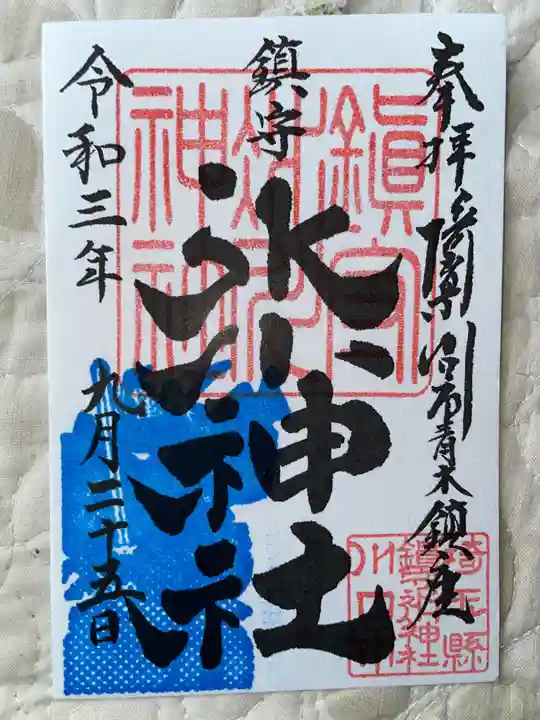 奉拝 埼玉県川口市青木鎮座
鎮守
氷川神社
令和三年
九月二十五日
埼玉縣
鎮守氷川神社
川口市